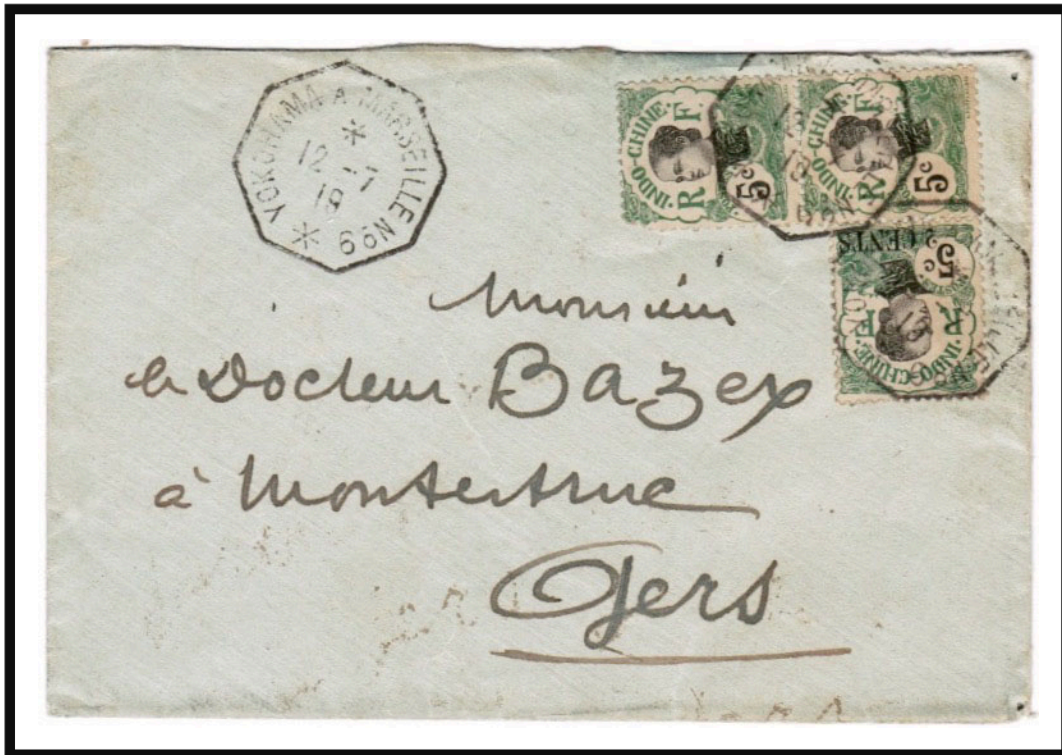 YOKOHAMA A MARSEILLE Nº 9
12
18
INDO-CHINE
R F
5c
INDO-CHINE
R F
5c
CENTS
5c
R F
INDO-CHINE
Monsieur
le Docteur Bazex
à Montestruc
Gers